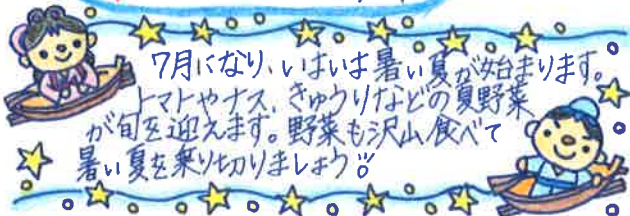 7月になり、いよいよ暑い夏が始まります。
トマトやナス、きゅうりなどの夏野菜
が旬を迎えます。野菜も沢山食べて
暑い夏を乗り切りましょう